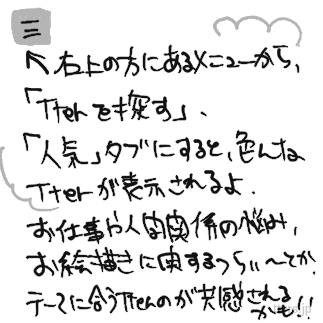 ↖右上の方にあるメニューから、
「Tterを探す」、
「人気」タブにすると、色んな
Tterが表示されるよ．
お仕事や人間関係の悩み、
お絵描きに関するつらぃ～とか．
テーマに合うTterのが共感される
かも!!